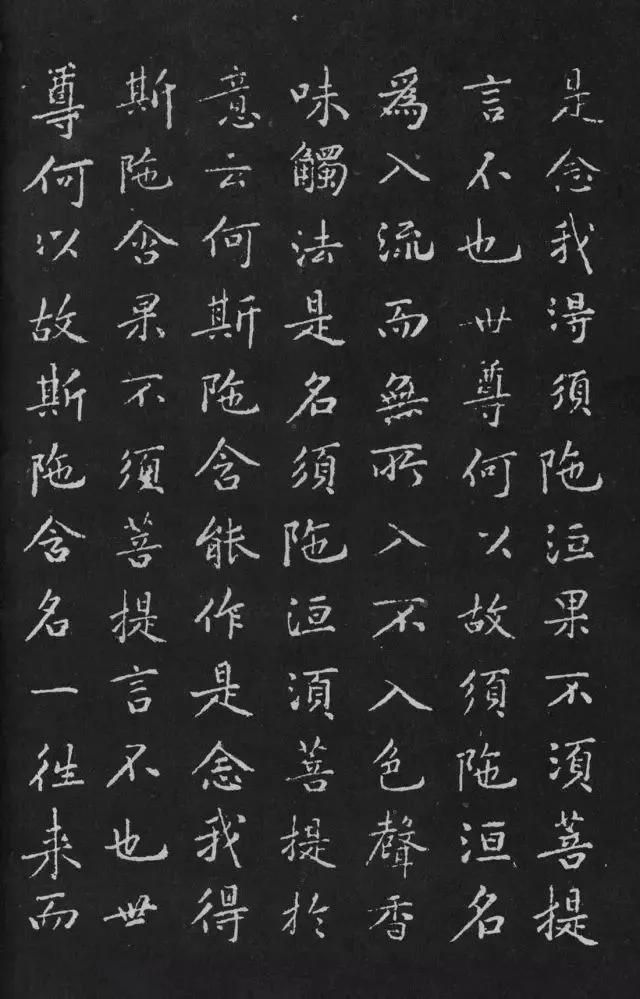 是念我得須陁洹果不須菩提
言不也世尊何以故須陁洹名
爲入流而無所入不入色聲香
味觸法是名須陁洹須菩提於
意云何斯陁含能作是念我得
斯陁含果不須菩提言不也世
尊何以故斯陁含名一往来而